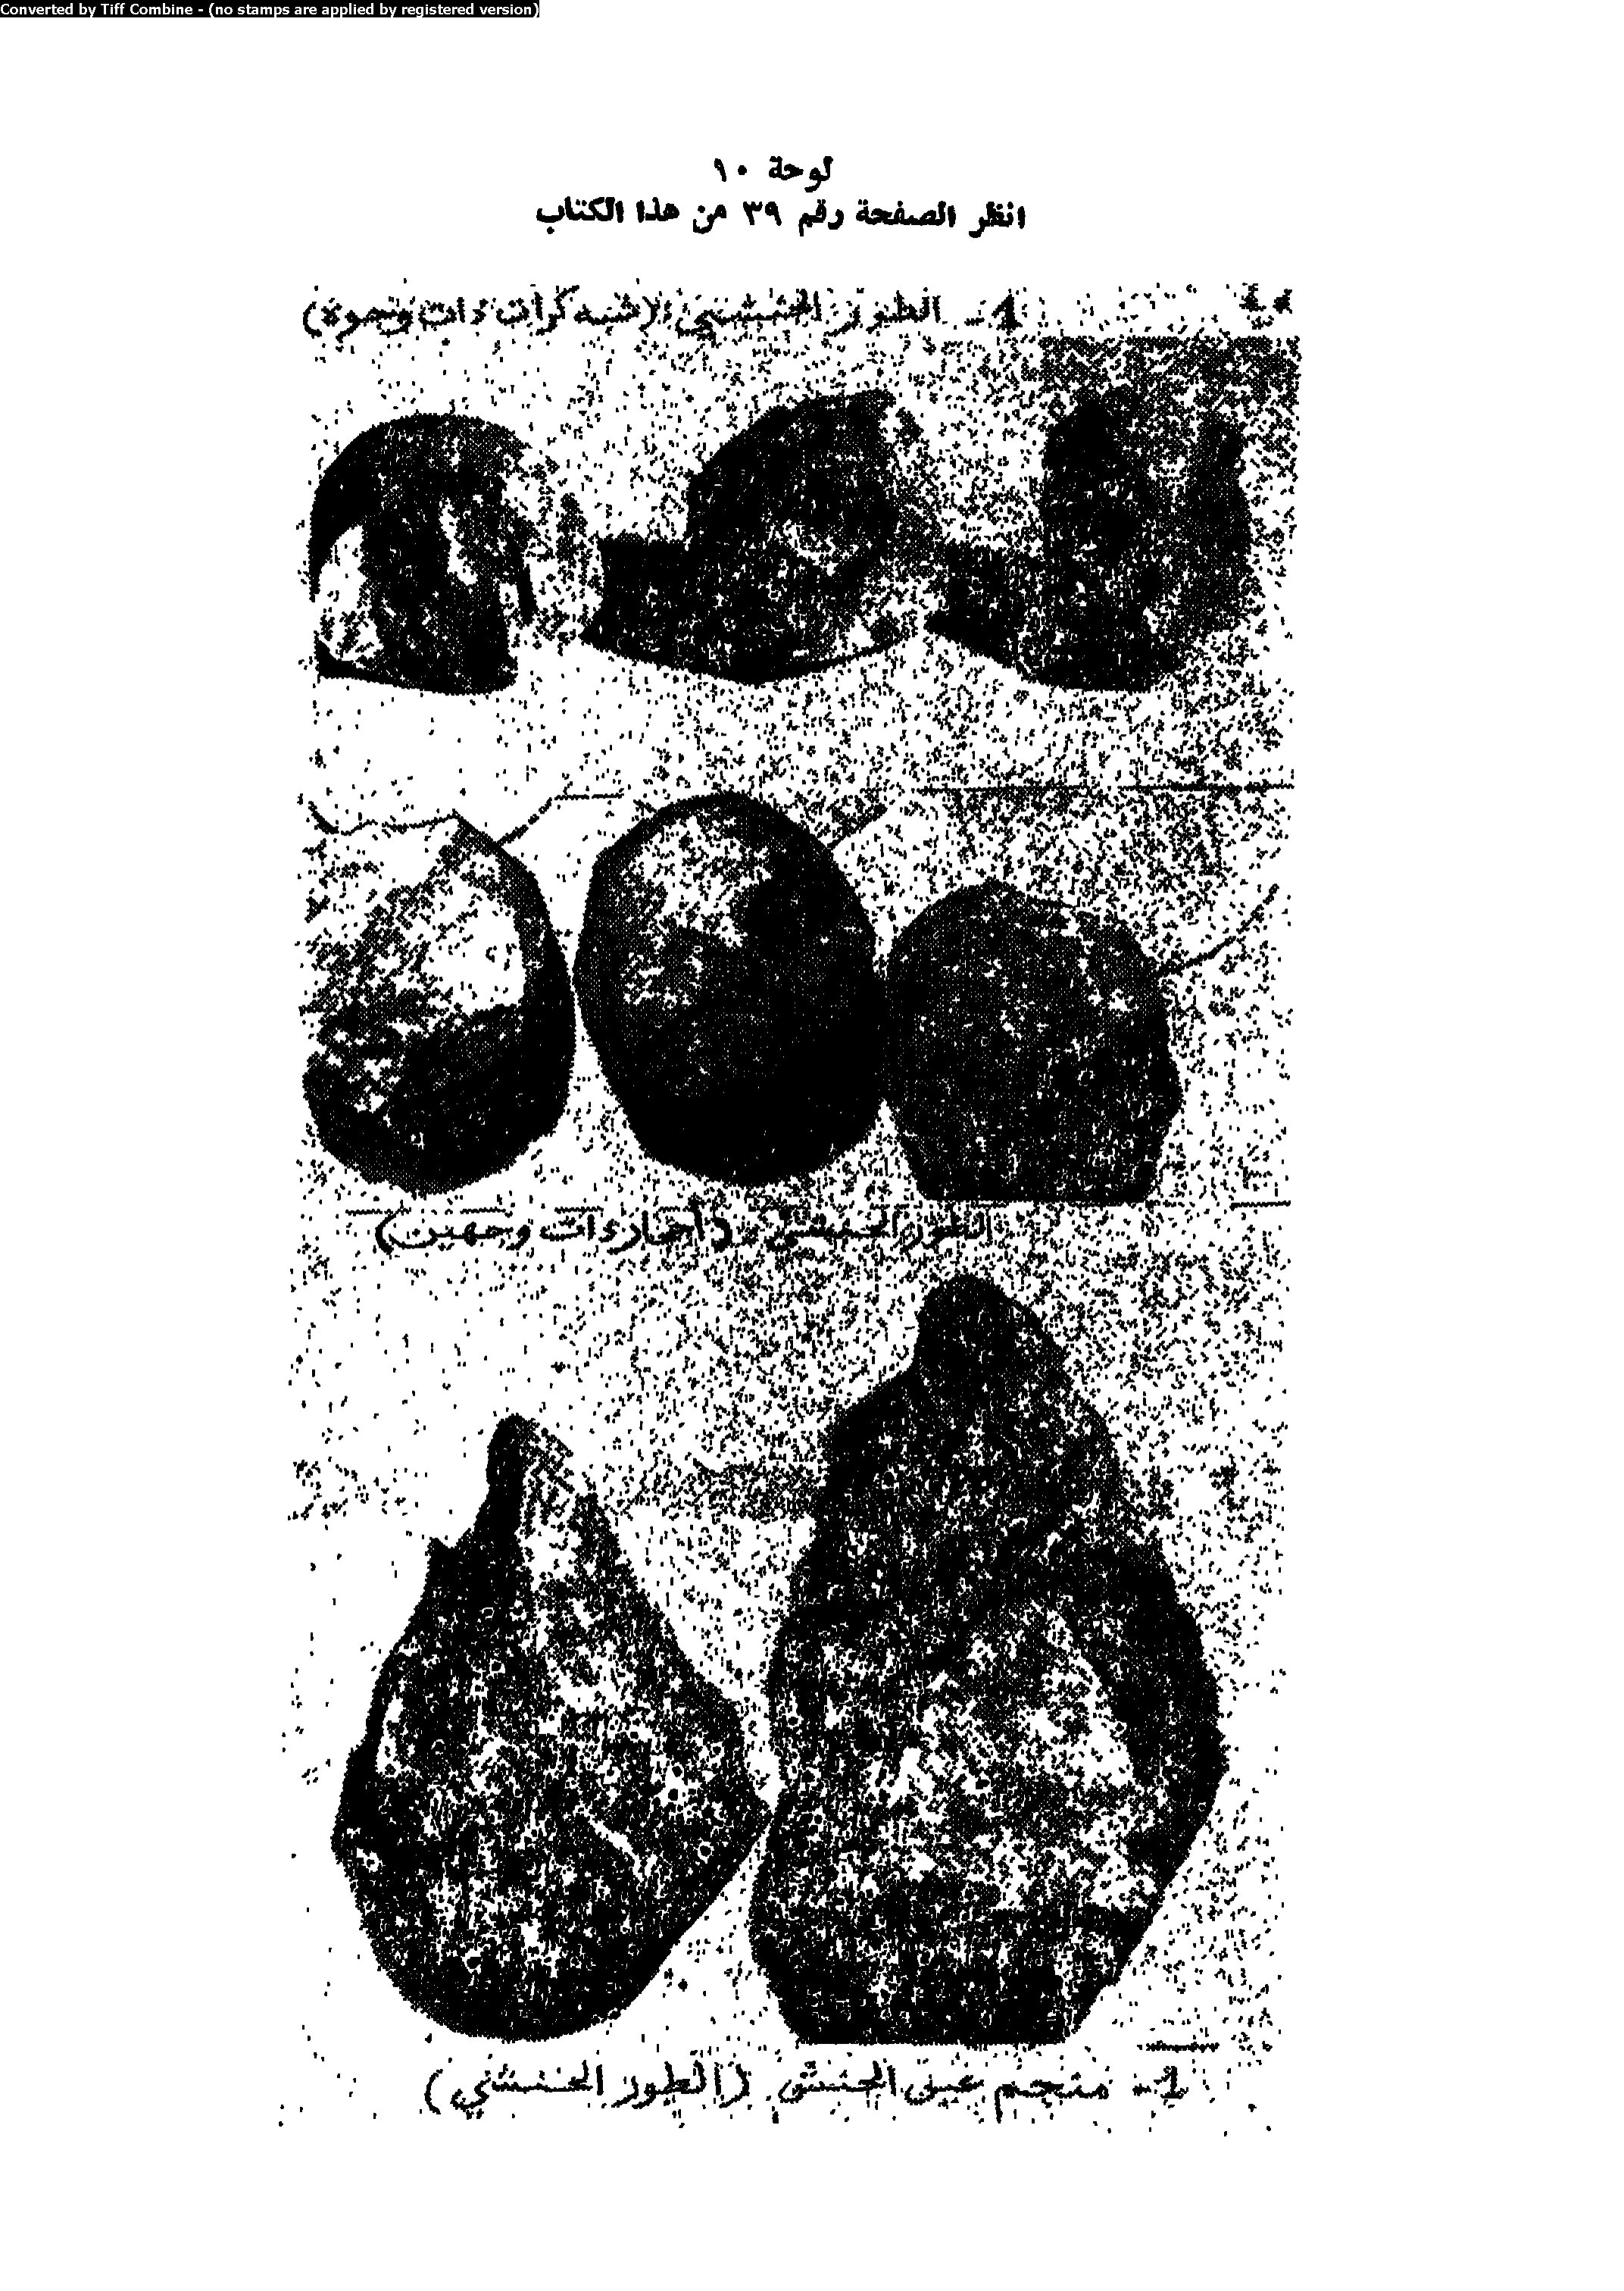 Converted by Tiff Combine - (no stamps are applied by registered version)
لوحة ١٠
انظر الصفحة رقم ٣٩ من هذا الكتاب
1 - الطور الحنشي (شبه كرات ذات وجوه)
الطور الحنشي (أحجار ذات وجهين)
1 - منجم عين الحنش (الطور الحنشي)